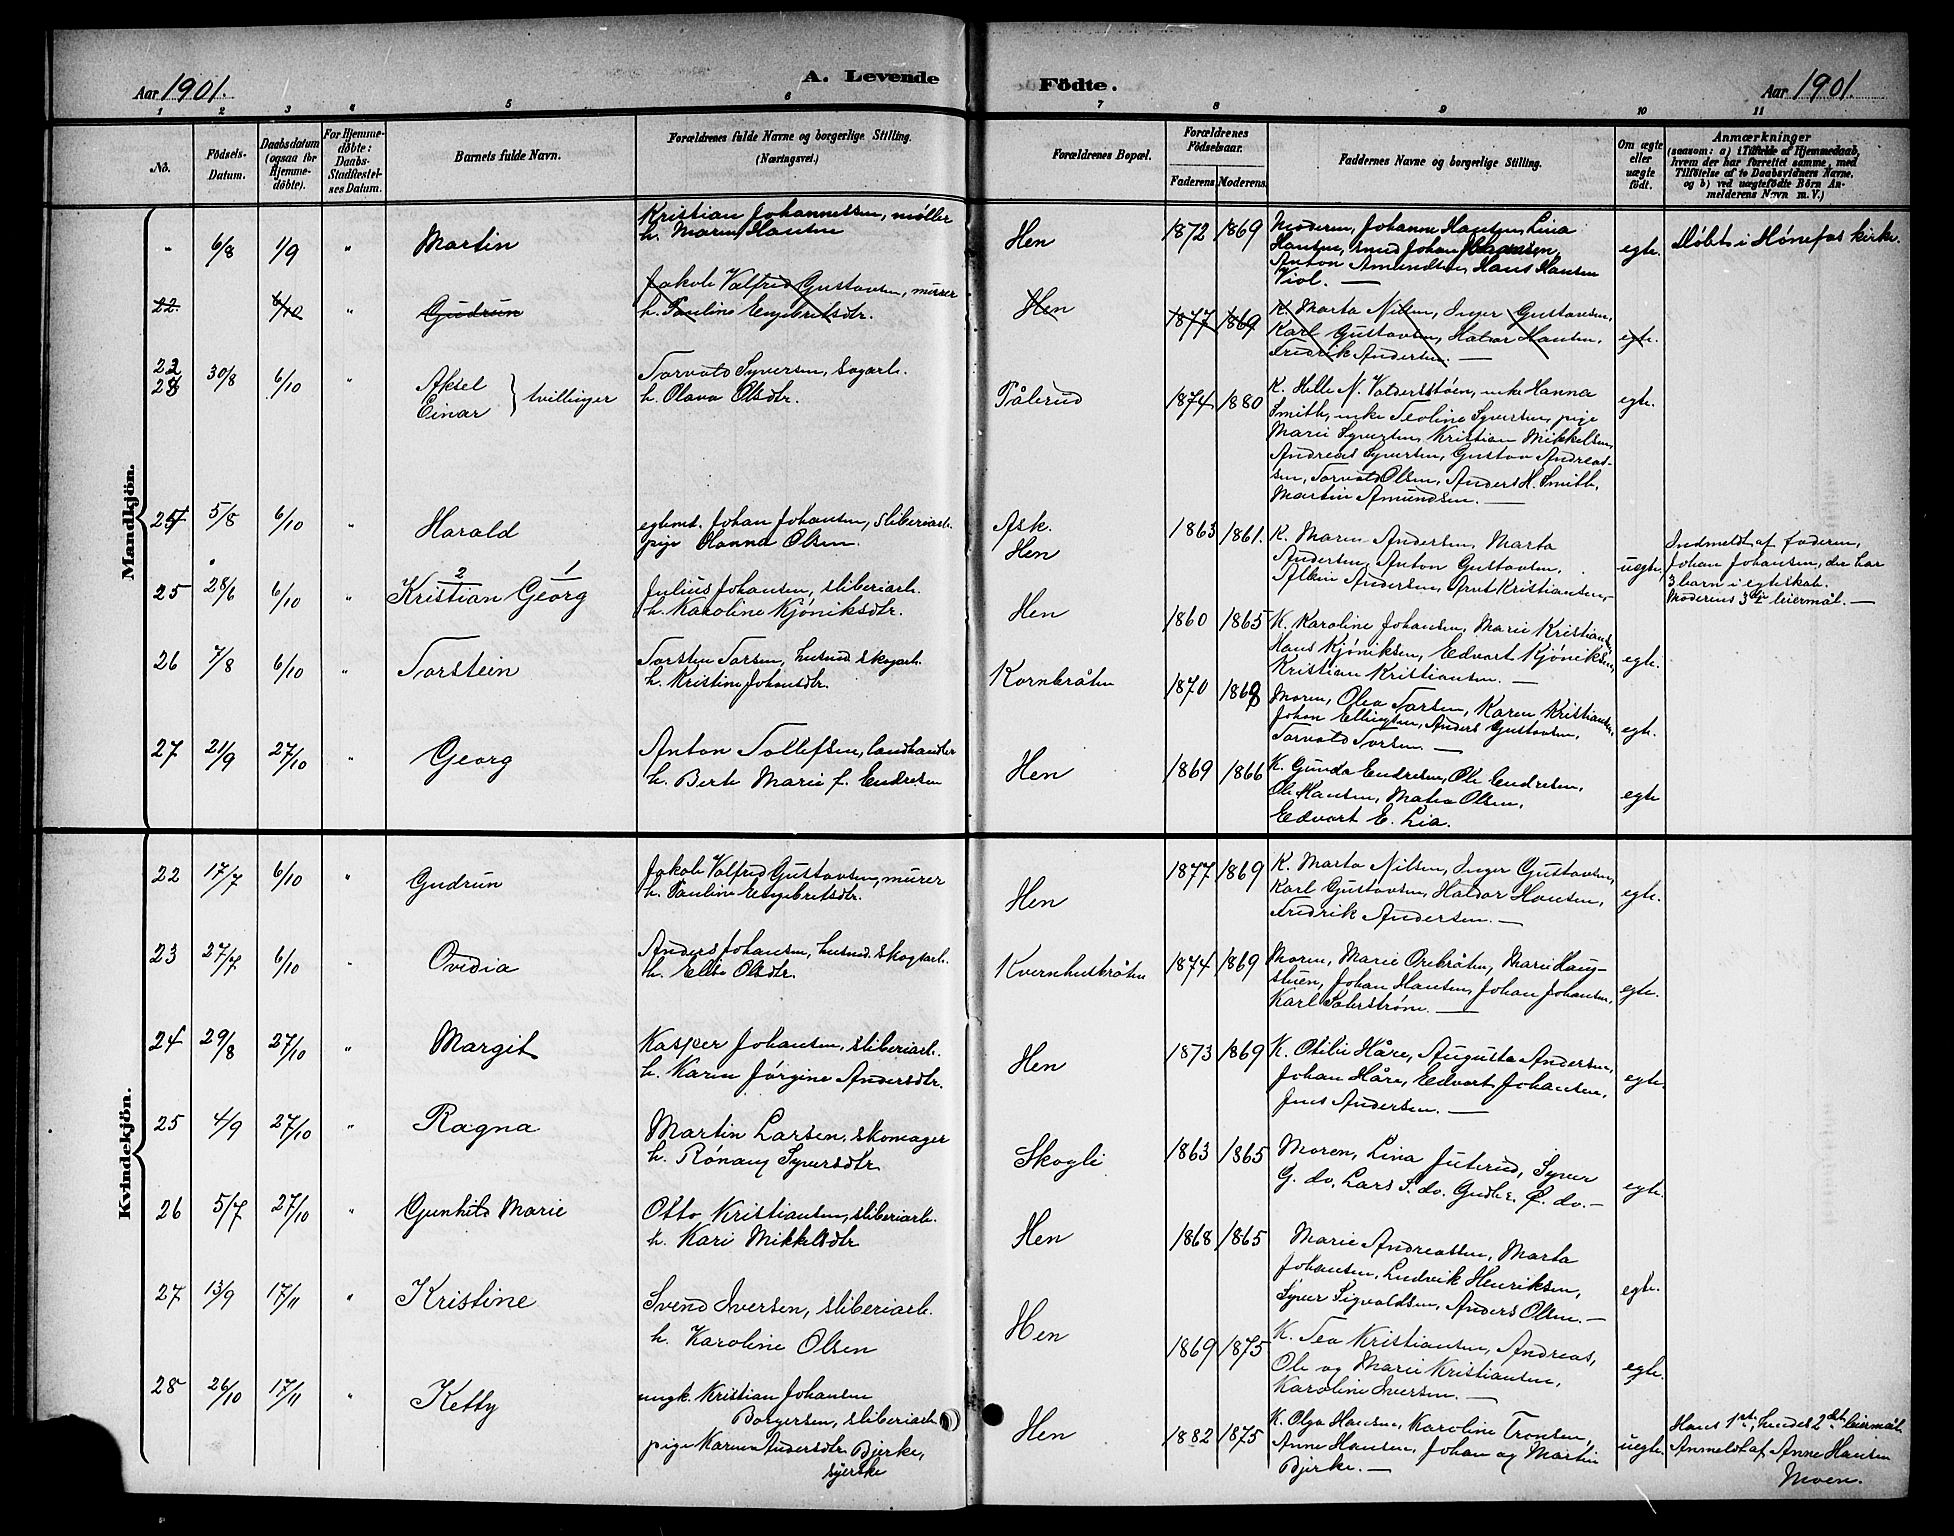 Aar 1901.
A. Levende
Födte.
Aar 1901.
1 2 3 4 5 6 7 8 9 10 11
No.
Födsels-
Datum.
Daabsdatum
(ogsaa for
Hjemme-
döbte).
For Hjemme-
döbte:
Daabs-
Stadfæstel-
ses Datum.
Barnets fulde Navn.
Forældrenes fulde Navne og borgerlige Stilling.
(Næringsvei.)
Forældrenes Bopæl.
Forældrenes
Födselsaar.
Faderens. Moderens.
Faddernes Navne og borgerlige Stilling.
Om ægte
eller
uægte
födt.
Anmærkninger
(saasom: a) i Tilfælde af Hjemmedaab,
hvem der har forrettet samme, med
Tilföielse af to Daabsvidners Navne,
og b) ved uægtefödte Börn An-
melderens Navn m. V.)
Mandkjön.
" 6/8 1/9 " Martin
Kristian Johannessen, møller
h. Maren Hansen
Hen
1872 1869
Moderen, Johanne Hansen, Lina
Hansen, smed Johan
Anton Amundsen, Hans Hansen
Viol. —
egte.
Døbt i Hønefos kirke.
22. 6/10 " Gudrun
Jakob Valfrid Gustavsen, murer
h. Pauline Engebretsdtr.
Hen
1877 1869
K. Marta Nilsen, Inger Gustavsen,
Karl Gustavsen, Halvor Hansen,
Fredrik Andersen. —
egte.
22
23 30/8 6/10 " Aksel
Einar } tvillinger
Torvald Syversen, Sagarb.
h. Olava Olsdtr.
Pålerud
1874 1880
K. Helle N. Valdersstøen, enke Hanna
Smith, enke Teoline Syversen, pige
Marie Syversen, Kristian Mikkelsen,
Andreas Syversen, Gustav Andreas-
sen, Torvald Olsen, Anders H. Smith,
Martin Amundsen. —
egte.
24 5/8 6/10 " Harald
egtemd. Johan Johansen, sliberiarb.
pige Hanna Olsen.
Ask.
Hen
1863 1861.
K. Maren Andersen, Marta
Andersen, Anton Gustavsen,
Albin Andersen, Arnt Kristiansen, -
uegte,
Indmeldt af faderen,
Johan Johansen, der har
3 barn i egteskab.
Moderens 3die leiermål. —
25 28/6 6/10 " Kristian Georg
2 1
Julius Johansen, sliberiarb.
h. Karoline Kjøniksdtr.
Hen
1860 1865
K. Karoline Johansen, Marie Kristians.
Hans Kjøniksen, Edvart Kjøniksen,
Kristian Kristiansen. —
egte.
26 7/8 6/10 " Torstein
Torsten Torsen, husmd. skogarb.
h. Kristine Johansdtr.
Kornbråten
1870 1868
Moren, Olea Torsen, Karen Kristiansen,
Johan Ellingsen, Anders Gustavsen,
Torvald Torsen. —
egte.
27 21/9 27/10 " Georg
Anton Tollefsen, landhandler
h. Berte Marie f. Endresen
Hen
1869 1866
K. Gunda Endresen, Ole Endresen,
Ole Hansen, Matea Olsen,
Edvart E. Lia.
egte
Kvindekjön.
22 17/7 6/10 " Gudrun
Jakob Valfrid Gustavsen, murer
h. Pauline Engebretsdtr.
Hen
1877 1869
K. Marta Nilsen, Inger Gustavsen,
Karl Gustavsen, Halvor Hansen,
Fredrik Andersen. —
egte.
23 27/7 6/10 " Ovidia
Anders Johansen, husmd. skogsarb.
h. Elise Olsdtr.
Kvernhusbråten
1874 1869
Moren, Marie Orebråten, Marie Haug-
stuen, Johan Hansen, Johan Johansen,
Karl Søderstrøm. —
egte.
24 29/8 27/10 " Margit
Kasper Johansen, sliberiarb.
h. Karen Jørgine Andersdtr.
Hen
1873 1869
K. Otilie Håre, Augusta Andersen,
Johan Håre, Edvart Johansen,
Jens Andersen. —
egte.
25 4/9 27/10 " Ragna
Martin Larsen, skomager
h. Rønaug Syversdtr.
Skogli
1863 1865
Moren, Lina Juterud, Syver
G. do, Lars S. do. Gudbr. Ø. do. -
egte.
26 5/7 27/10 " Gunhild Marie
Otto Kristiansen, sliberiarb.
h. Kari Mikkelsdtr
Hen
1868 1865
Marie Andreassen, Marta
Johansen, Ludvik Henriksen,
Syver Sigvaldsen, Anders Olsen. —
egte.
27 13/9 17/11 " Kristine
Svend Iversen, sliberiarb.
h. Karoline Olsen
Hen
1869 1875
K. Tea Kristiansen, Andreas,
Ole og Marie Kristiansen,
Karoline Iversen. —
egte.
28 26/10 17/11 " Ketty
ungk. Kristian Johansen
Borgersen, sliberiarb.
pige Karen Andersdtr. Bjerke,
syerske
Hen
1882 1875
K. Olga Hansen, Karoline Tronsen,
Anne Hansen, Johan og Martin
Bjerke. —
uegte.
Hans 1ste, hendes 2det leiermål.
Anmeldt af Anne Hansen
Moen.